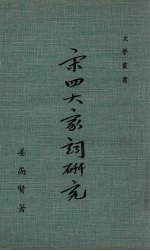 文學叢書
宋四大家詞研究
姜尚賢著